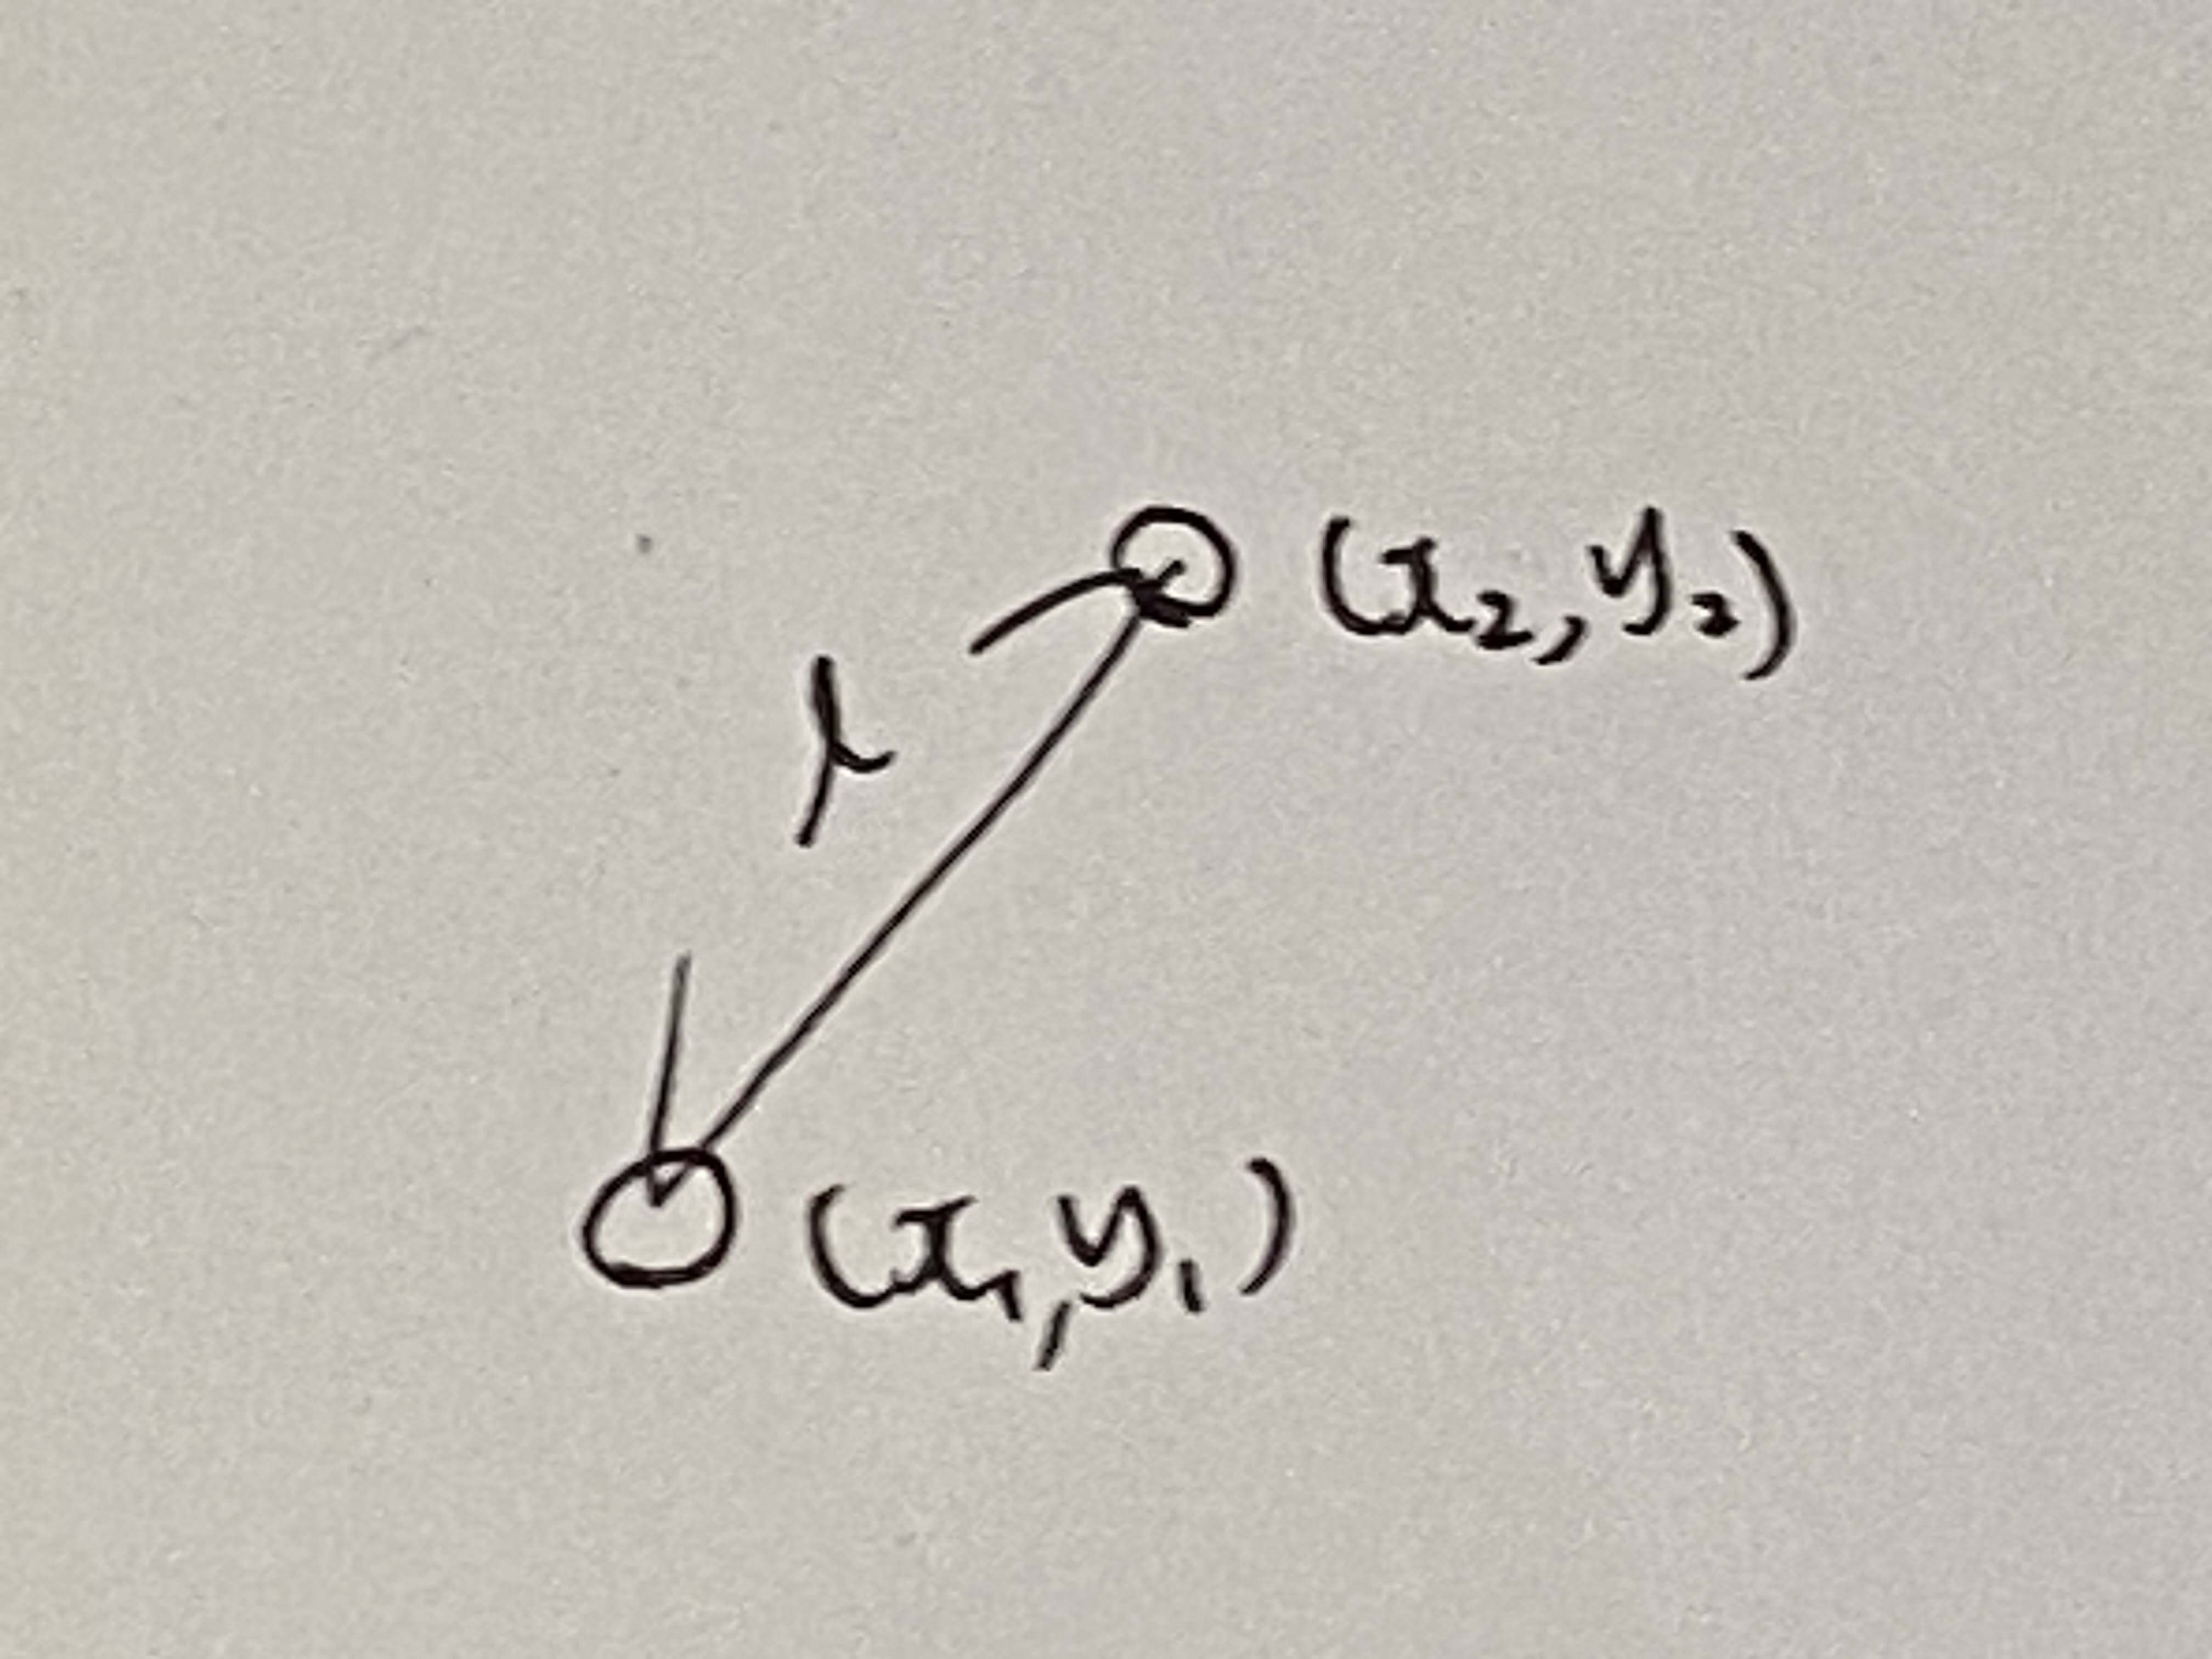 (x₂, y₂)
(x₁, y₁)